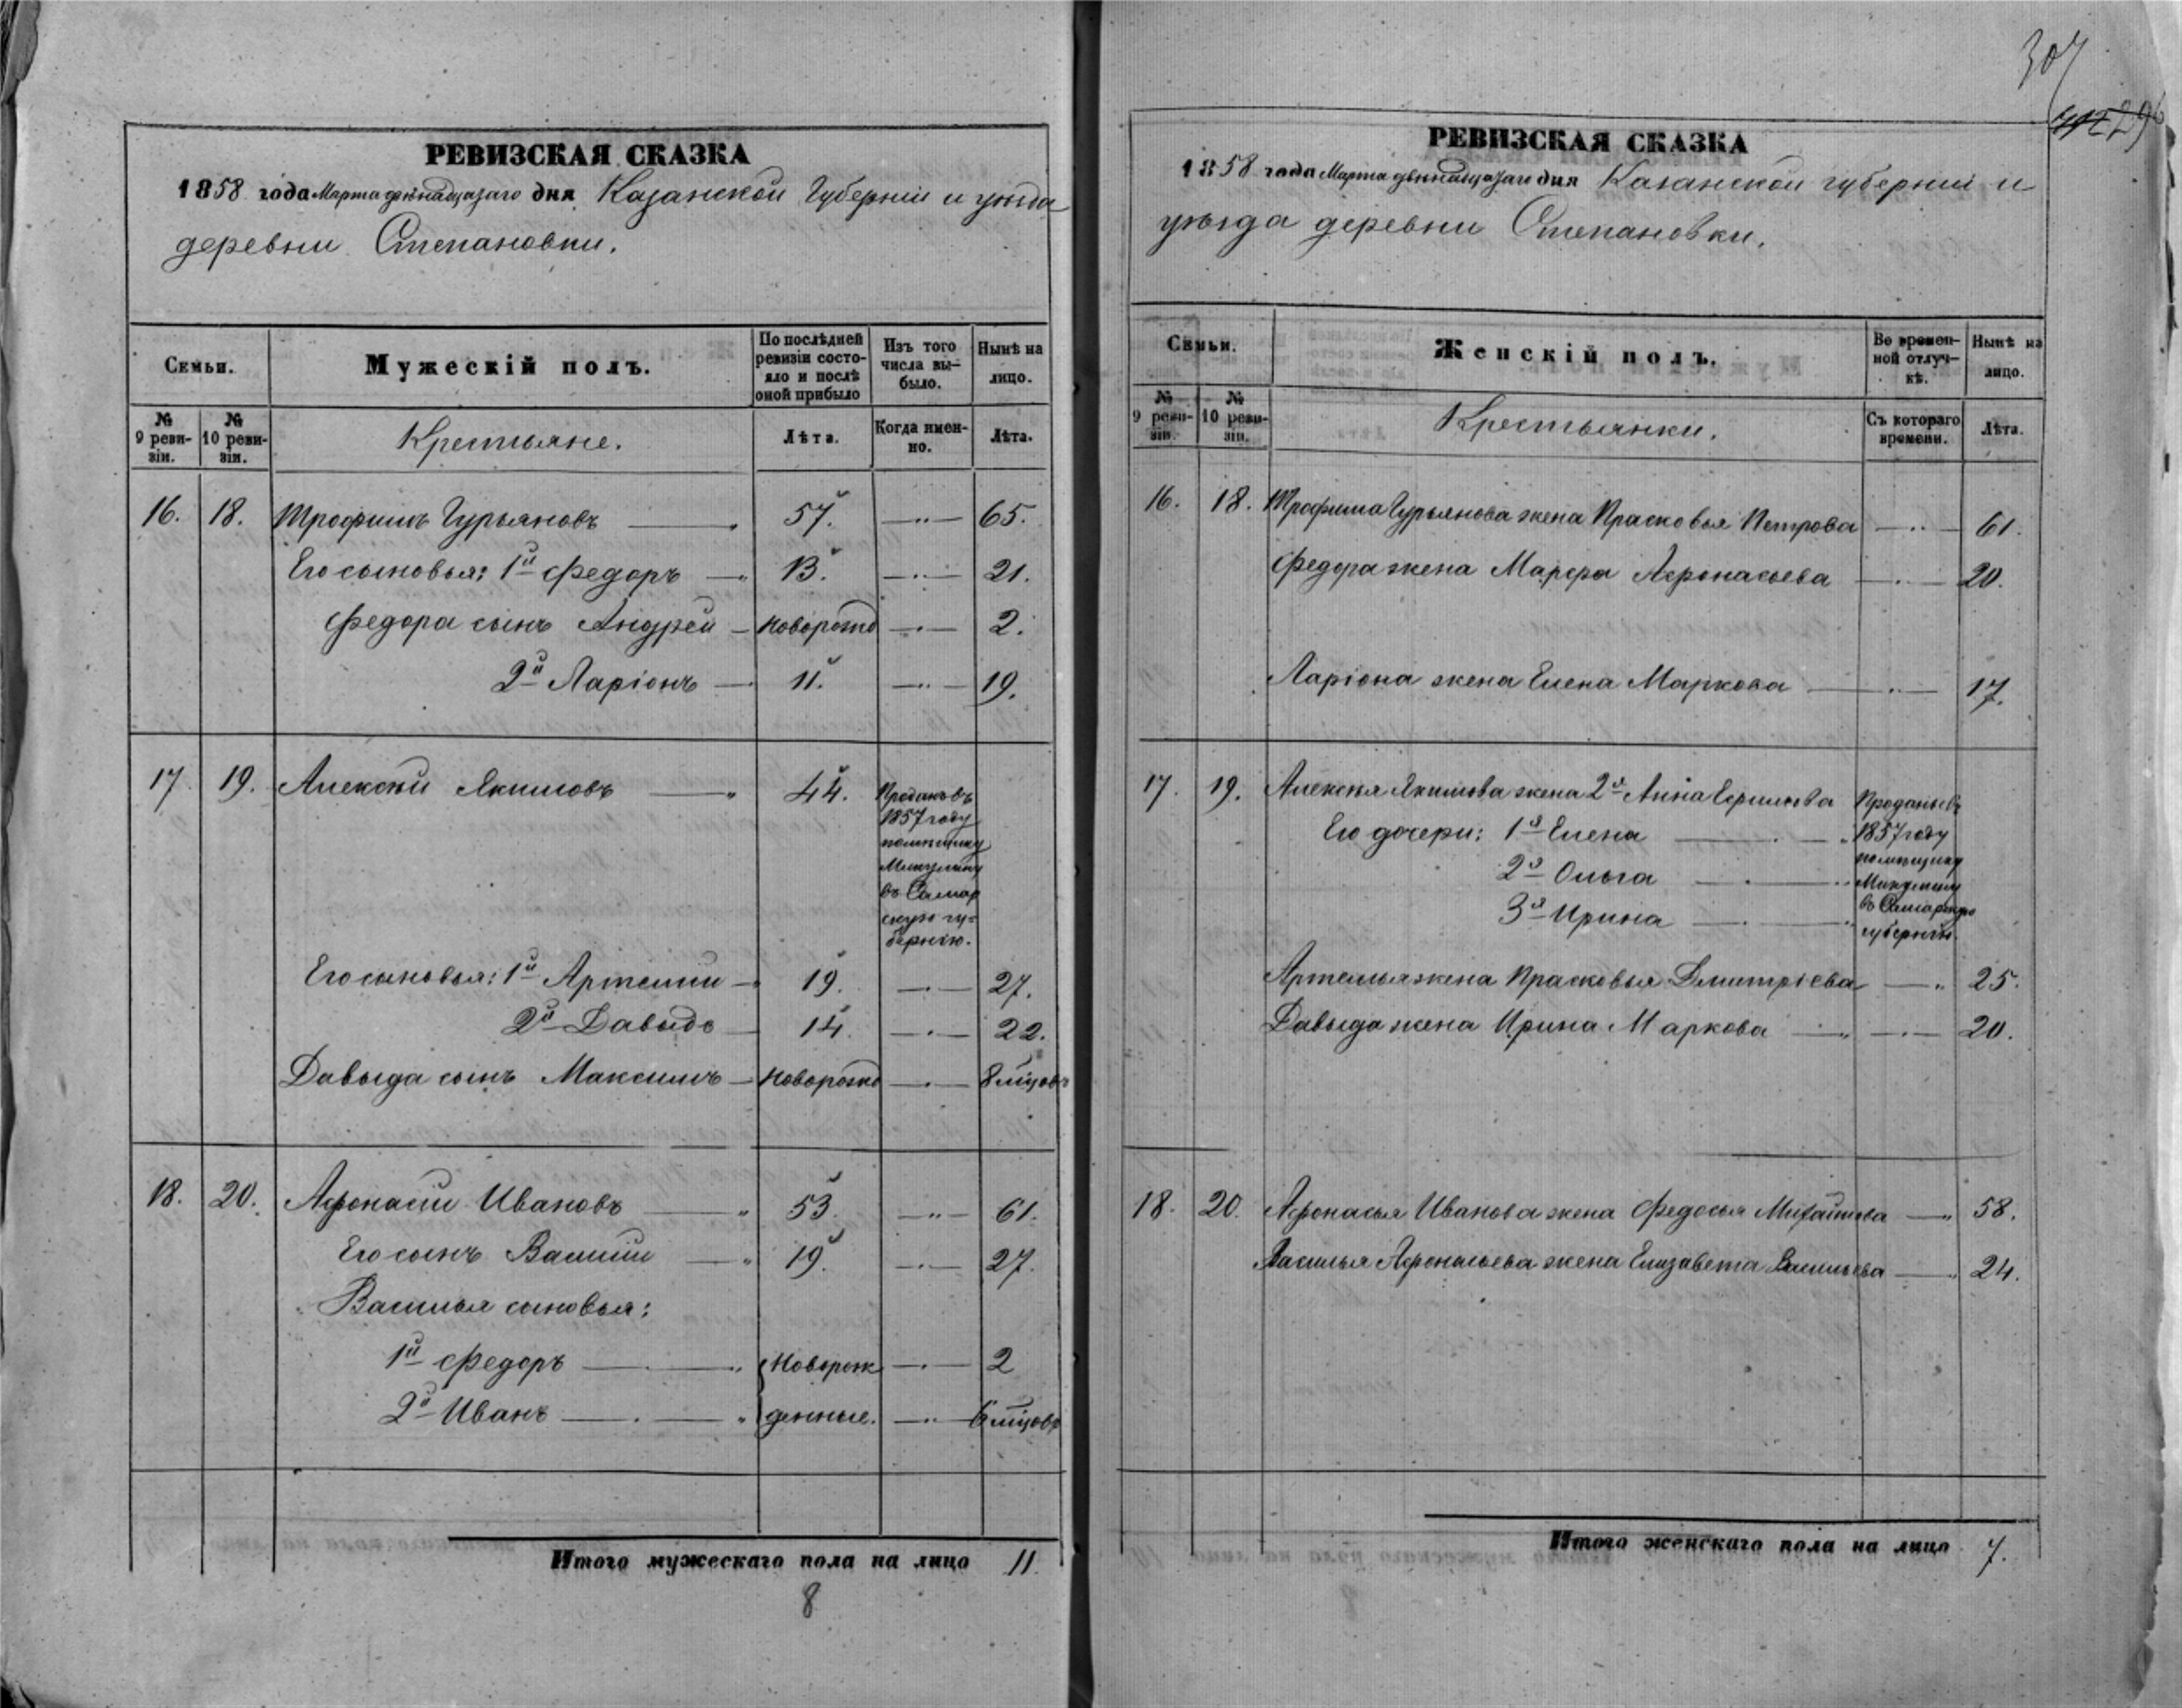 РЕВИЗСКАЯ СКАЗКА
1858 года Марта двѣнадцатаго дня Казанской Губерніи и уѣзда
деревни Степановки.
Семьи.
Мужескій полъ.
По послѣдней ревизіи состояло и послѣ оной прибыло
Изъ того числа вы-было.
Нынѣ на лицо.
№ 9 реви-зіи.
№ 10 реви-зіи.
Крестьяне.
Лѣта.
Когда имен-но.
Лѣта.
16. 18. Трофимъ Гурьяновъ 57. 65.
Его сыновья: 1й Федоръ 13. 21.
Федора сынъ Андрей новорожд 2.
2й Ларіонъ 11. 19.
17 19. Алексѣй Якимовъ 44. Проданъ въ
1857 году
помѣщику
Микулину
въ Самар
скую гу=
бернію.
Его сыновья: 1й Артемий 19. 27.
2й Давыдъ 14. 22.
Давыда сынъ Максимъ новорожд 8 мцовъ
18. 20. Афонасий Ивановъ 53. 61.
Его сынъ Василий 19. 27.
Василья сыновья:
1й Федоръ Новорож 2
2й Иванъ денные. 6 мцовъ
Итого мужескаго пола на лицо 11.
8
307
296
РЕВИЗСКАЯ СКАЗКА
1858 года Марта двѣнадцатаго дня Казанской губерніи и
уѣзда деревни Степановки.
Семьи.
Женскій полъ.
Во времен-ной отлуч-кѣ.
Нынѣ на лицо.
№ 9 реви-зіи.
№ 10 реви-зіи.
Крестьянки.
Съ котораго времени.
Лѣта.
16. 18. Трофима Гурьянова жена Прасковья Петрова 61.
Федора жена Марфа Афонасьева 20.
Ларіона жена Елена Маркова 17.
17. 19. Алексѣя Якимова жена 2я Анна Ефимова Проданы въ
Его дочери: 1я Елена 1857 году
2я Ольга помѣщику
Микулину
3я Ирина въ Самарскую
губернію.
Артемья жена Прасковья Дмитріева 25.
Давыда жена Ирина Маркова 20.
18. 20. Афонасья Иванова жена Федосья Михайлова 58.
Василья Афонасьева жена Елизавета Васильева 24.
Итого женскаго пола на лицо 7.